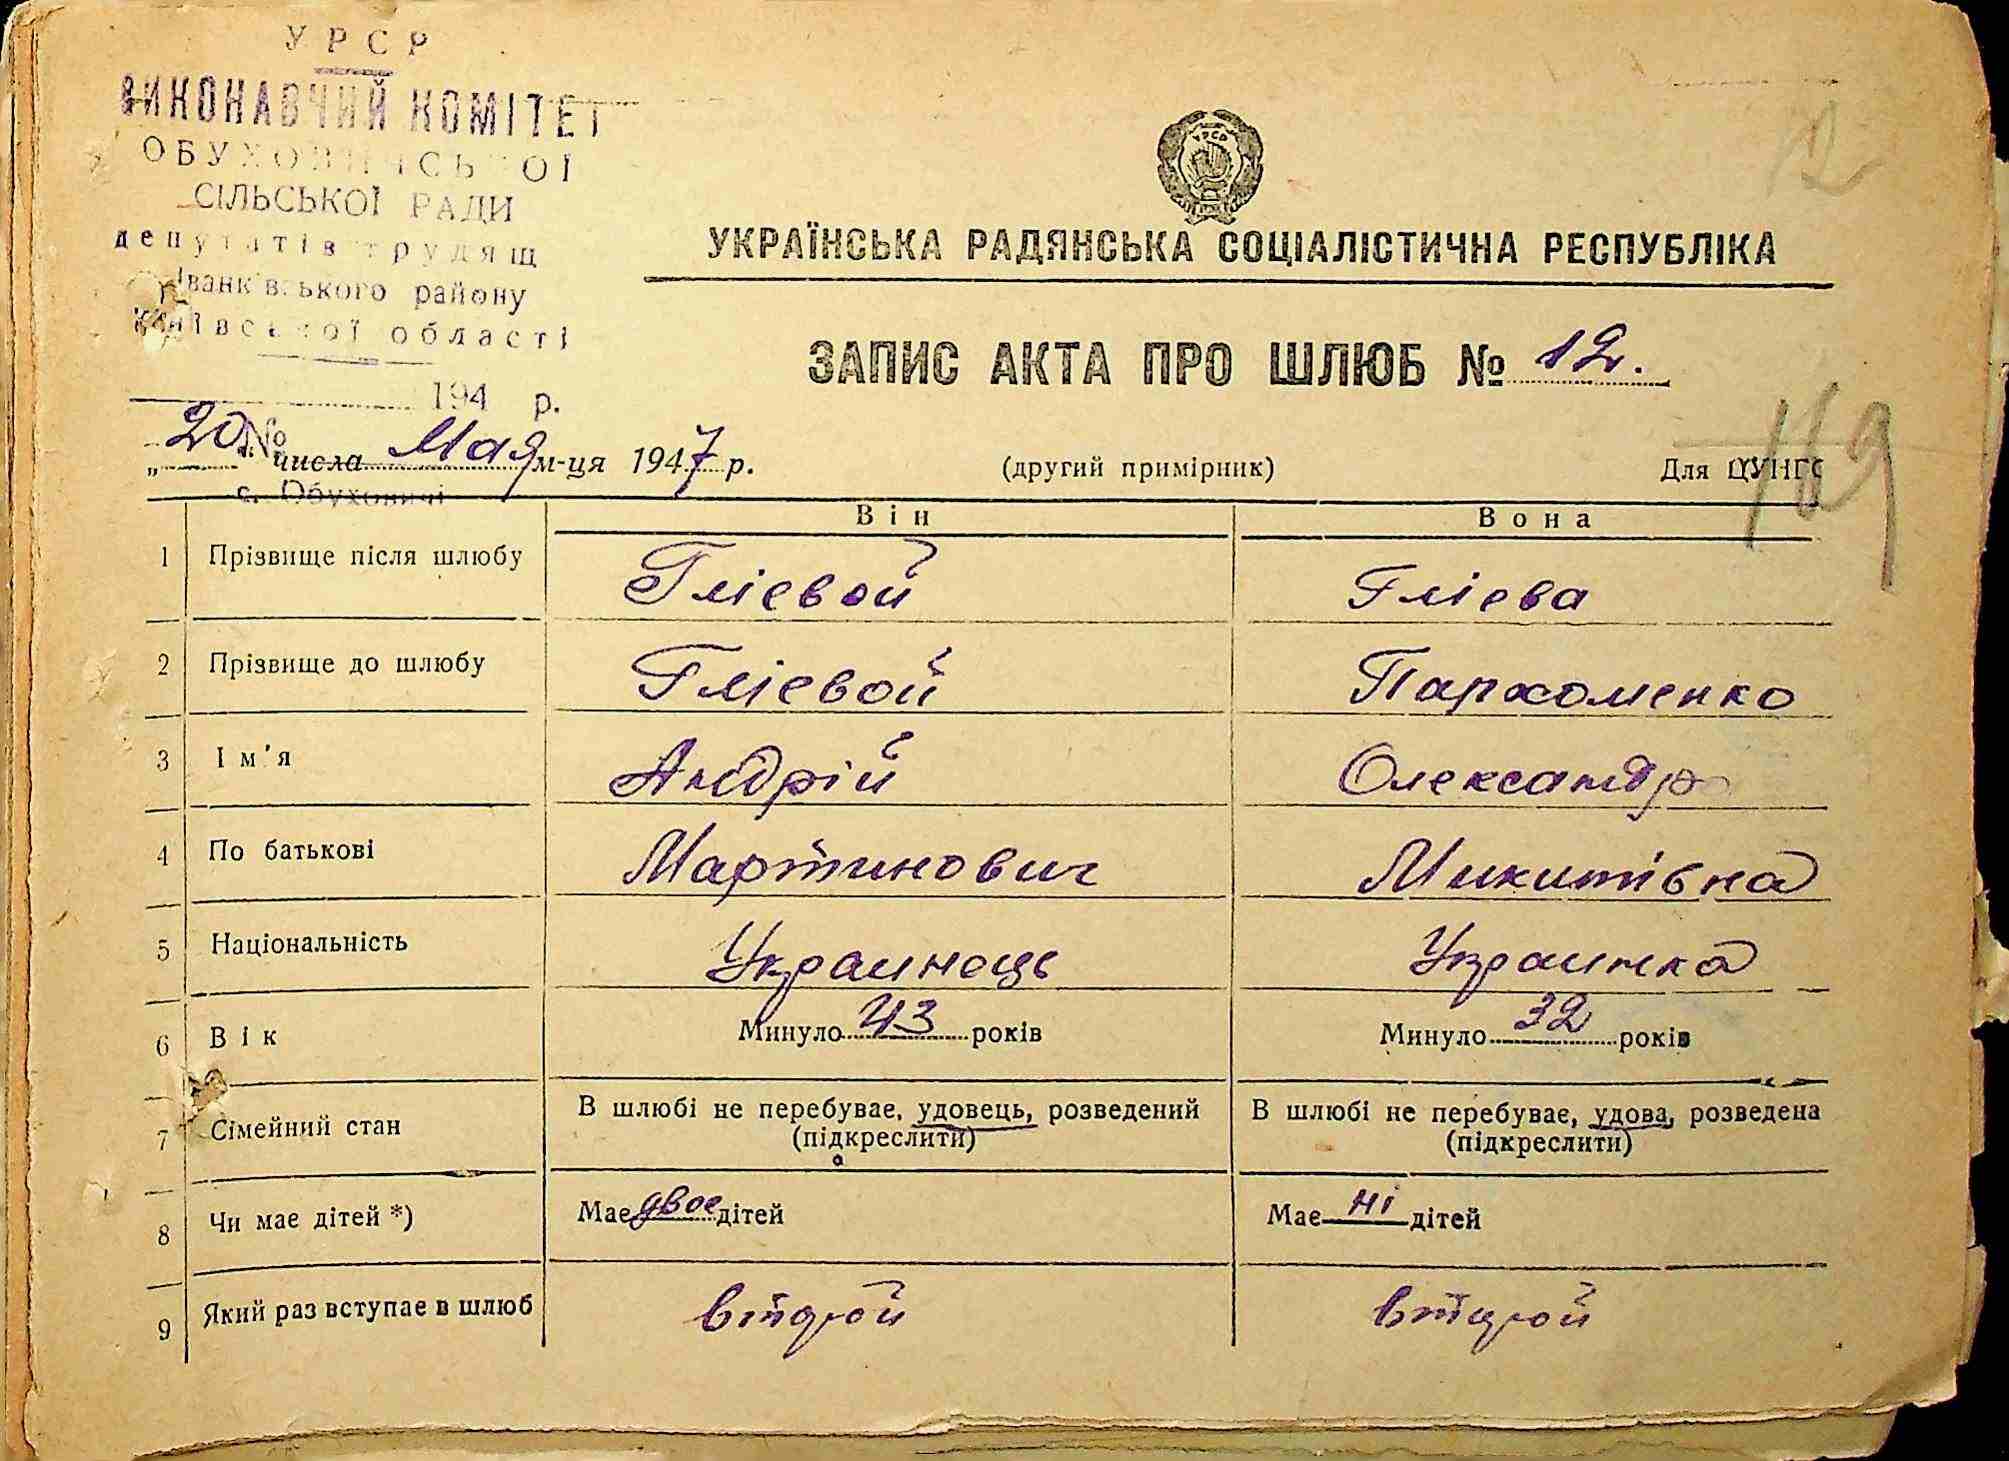 УРСР
ВИКОНАВЧИЙ КОМІТЕТ
ОБУХОВИЧСЬКОЇ
СІЛЬСЬКОЇ РАДИ
депутатів трудящ
Іванківського району
Київської області
194 р.
№
с. Обуховичі
12
УКРАЇНСЬКА РАДЯНСЬКА СОЦІАЛІСТИЧНА РЕСПУБЛІКА
ЗАПИС АКТА ПРО ШЛЮБ № 12.
„20" числа Мая м-ця 1947 р.
(другий примірник)
Для ЦУНГО
169
Він Вона
1 Прізвище після шлюбу Глієвой Глієва
2 Прізвище до шлюбу Глієвой Пархоменко
3 Ім'я Андрій Олександр
4 По батькові Мартинович Микитівна
5 Національність Украинець Украинка
6 Вік Минуло 43 років Минуло 32 років
7 Сімейний стан В шлюбі не перебуває, удовець, розведений В шлюбі не перебуває, удова, розведена
(підкреслити) (підкреслити)
8 Чи має дітей *) Має двое дітей Має ні дітей
9 Який раз вступає в шлюб второй второй